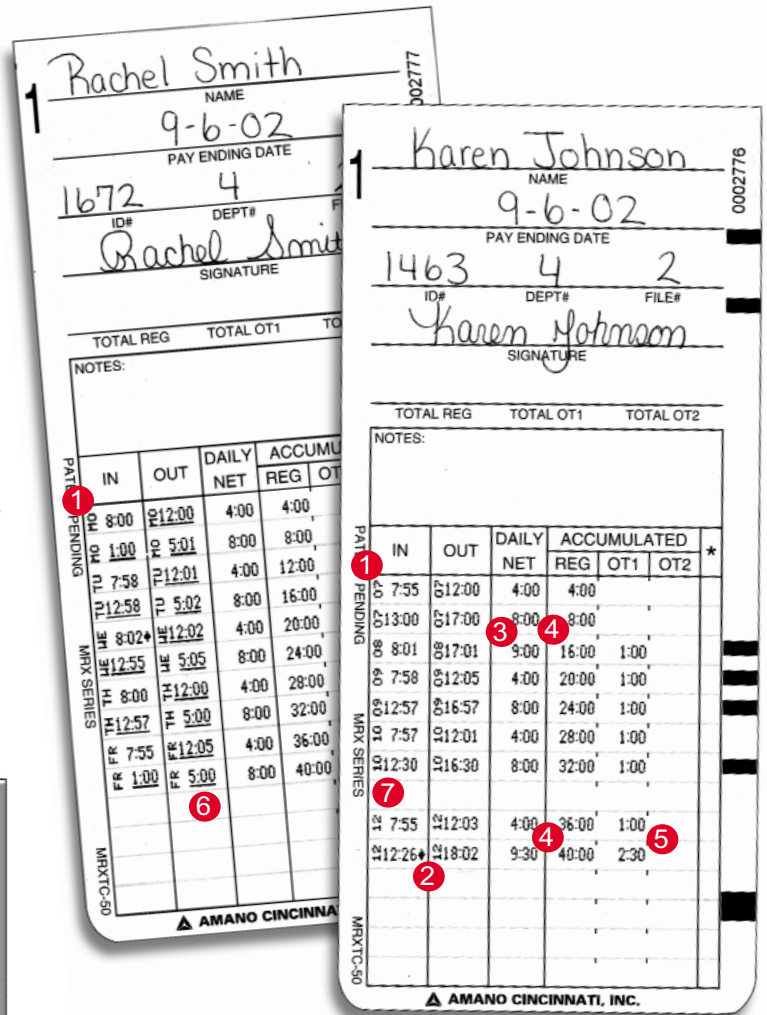 1
Rachel Smith
NAME
9-6-02
PAY ENDING DATE
1672 4
ID# DEPT#
Rachel Smit
SIGNATURE
TOTAL REG TOTAL OT1
NOTES:
IN OUT DAILY NET ACCUMU
REG OT
MO 8:00 MO 12:00 4:00 4:00
MO 1:00 MO 5:01 8:00 8:00
TU 7:58 TU 12:01 4:00 12:00
TU 12:58 TU 5:02 8:00 16:00
WE 8:02♦ WE 12:02 4:00 20:00
WE 12:55 WE 5:05 8:00 24:00
TH 8:00 TH 12:00 4:00 28:00
TH 12:57 TH 5:00 8:00 32:00
FR 7:55 FR 12:05 4:00 36:00
FR 1:00 FR 5:00 8:00 40:00
1
6
PENDING
MRX SERIES
MRXTC-50
AMANO CINCINNA
002777
1
Karen Johnson
NAME
9-6-02
PAY ENDING DATE
1463 4 2
ID# DEPT# FILE#
Karen Johnson
SIGNATURE
TOTAL REG TOTAL OT1 TOTAL OT2
NOTES:
IN OUT DAILY NET ACCUMULATED *
REG OT1 OT2
07 7:55 07 12:00 4:00 4:00
07 13:00 07 17:00 8:00 8:00
08 8:01 08 17:01 9:00 16:00 1:00
09 7:58 09 12:05 4:00 20:00 1:00
09 12:57 09 16:57 8:00 24:00 1:00
10 7:57 10 12:01 4:00 28:00 1:00
10 12:30 10 16:30 8:00 32:00 1:00
12 7:55 12 12:03 4:00 36:00 1:00
12 12:26♦ 12 18:02 9:30 40:00 2:30
1
3 4
7
4 5
2
PENDING
MRX SERIES
MRXTC-50
AMANO CINCINNATI, INC.
0002776